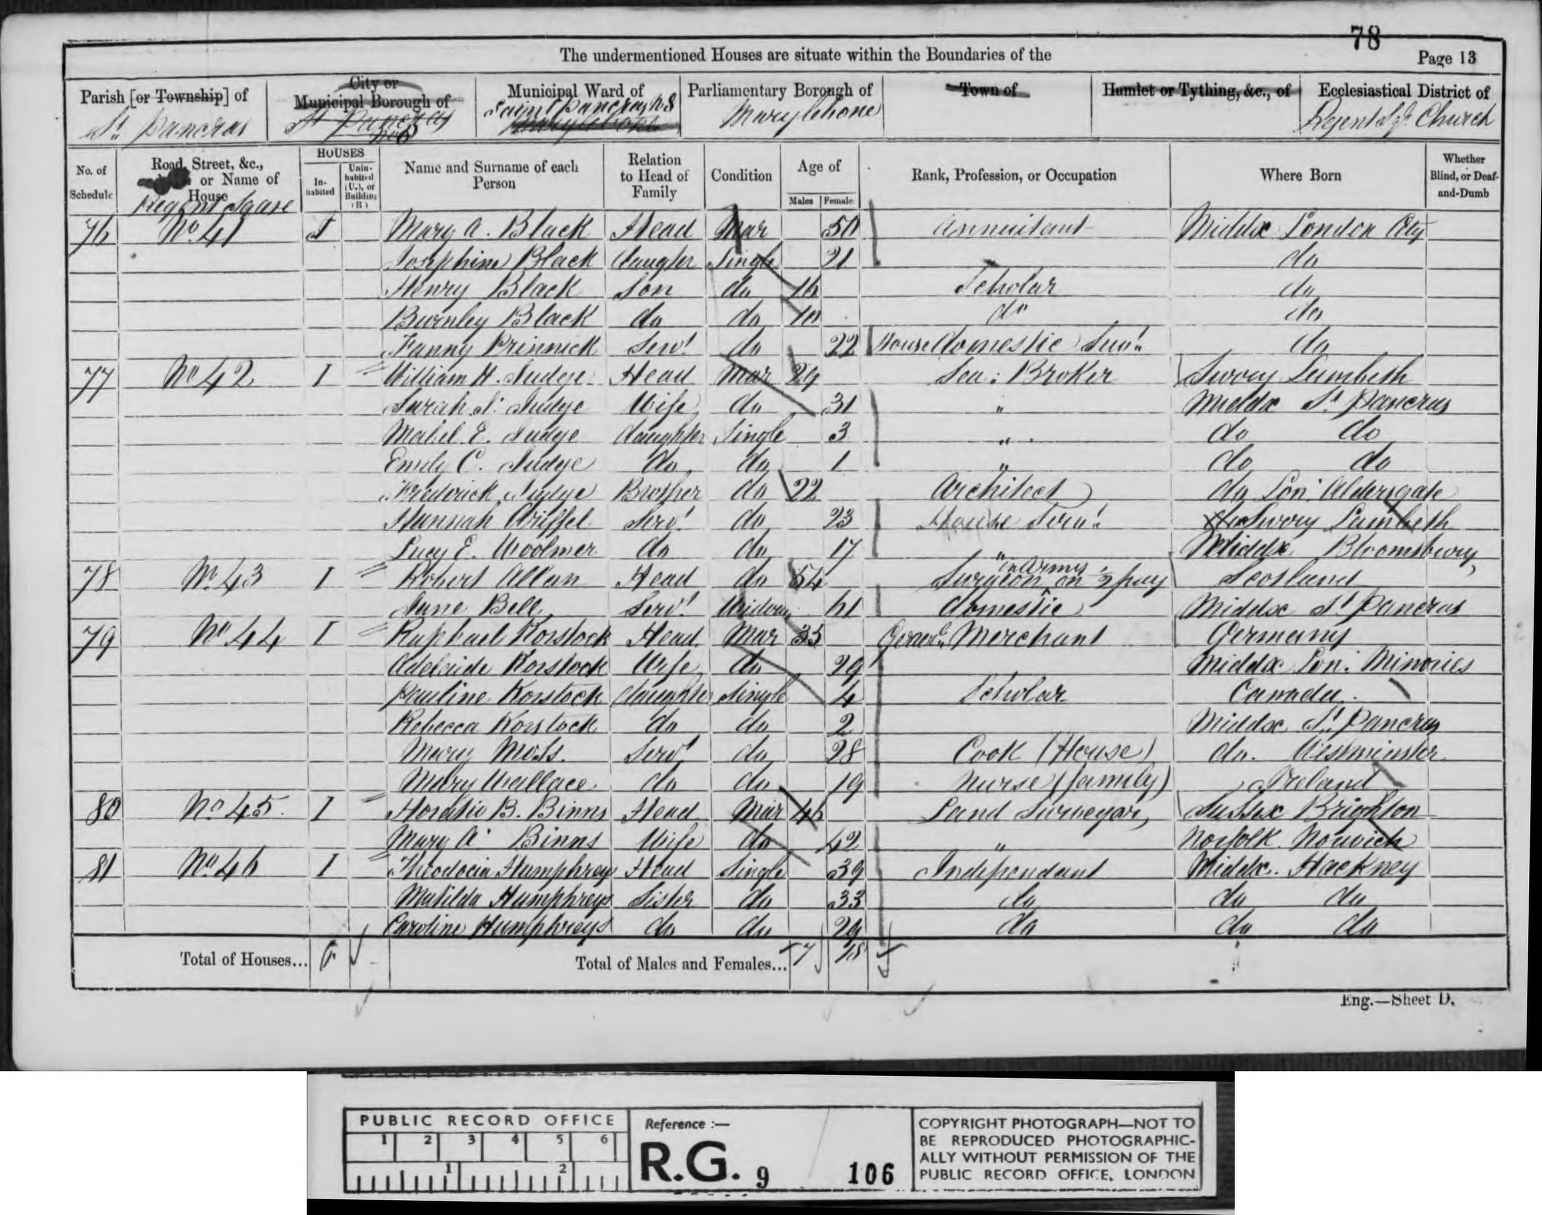 78
The undermentioned Houses are situate within the Boundaries of the Page 13
Parish [or Township] of City or Municipal Borough of Municipal Ward of Parliamentary Borough of Town of Hamlet or Tything, &c., of Ecclesiastical District of
St Pancras St Pancras Saint Pancras Marylebone Regent Sqr Church
No. of Schedule Road, Street, &c., or Name of House HOUSES Inhabited Uninhabited (U.), or Building (B.) Name and Surname of each Person Relation to Head of Family Condition Age of Males Female Rank, Profession, or Occupation Where Born Whether Blind, or Deaf-and-Dumb
Regent Square
76 No. 41 I Mary A. Black Head Mar 50 Annuitant Middx London City
Josephine Black Daughter Single 21 do
Henry Black Son do 16 Scholar do
Burnley Black do do 10 do do
Fanny Prinnick Servt do 22 House Domestic Servt do
77 No 42 I William H. Judge Head Mar 29 Sea: Broker Surrey Lambeth
Sarah S. Judge Wife do 31 " Middx St Pancras
Mabel E. Judge Daughter Single 3 " do do
Emily C. Judge do do 1 " do do
Frederick Judge Brother do 22 Architect do Lon: Aldersgate
Hannah Griffel Servt do 23 House Servt Surrey Lambeth
Lucy E. Woolmer do do 17 " Middx Bloomsbury
78 No. 43 I Robert Allan Head do 54 Surgeon in Army on ½ pay Scotland
Jane Bell Servt Widow 61 Domestic Middx St Pancras
79 No. 44 I Raphael Korstock Head Mar 35 Genl. Merchant Germany
Adelaide Korstock Wife do 29 Middx Lon: Minories
Pauline Korstock Daughter Single 4 Scholar Canada
Rebecca Korstock do do 2 Middx St Pancras
Mary Moss Servt do 28 Cook (House) do. Westminster
Mary Wallace do do 19 Nurse (family) Ireland
80 No 45 I Horatio B. Binns Head Mar 46 Land Surveyor Sussex Brighton
Mary A Binns Wife do 42 " Norfolk Norwich
81 No. 46 I Theodocia Humphreys Head Single 39 Independant Middx Hackney
Matilda Humphreys Sister do 33 do do do
Caroline Humphreys do do 29 do do do
Total of Houses... 6 Total of Males and Females... 7 18
Eng.—Sheet D.
PUBLIC RECORD OFFICE
1 2 3 4 5 6
1 2
Reference :—
R.G. 9 106
COPYRIGHT PHOTOGRAPH—NOT TO
BE REPRODUCED PHOTOGRAPHIC-
ALLY WITHOUT PERMISSION OF THE
PUBLIC RECORD OFFICE, LONDON